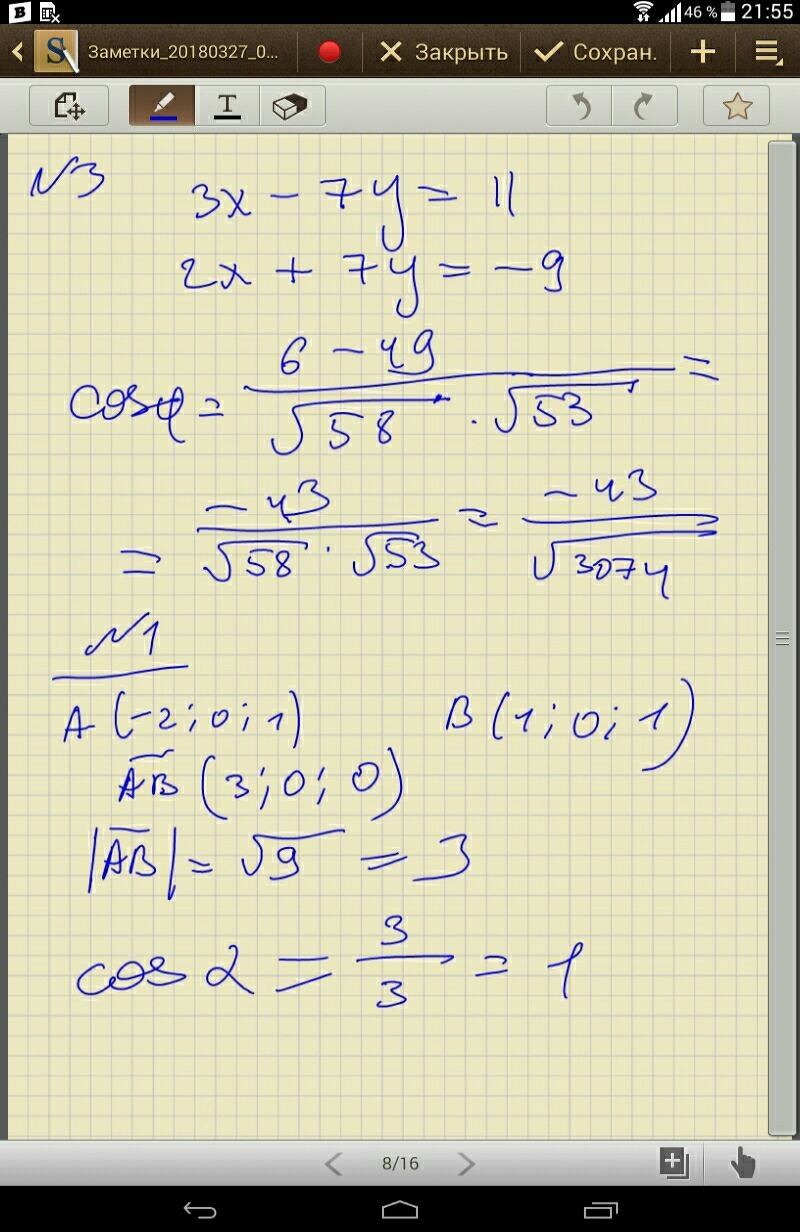 46 % 21:55
Заметки_20180327_0... Закрыть Сохран.
T
N3
3x - 7y = 11
2x + 7y = -9
cosφ = (6 - 49) / (√58 · √53) =
= -43 / (√58 · √53) = -43 / √3074
N1
A (-2; 0; 1) B (1; 0; 1)
AB (3; 0; 0)
|AB| = √9 = 3
cos α = 3/3 = 1
8/16